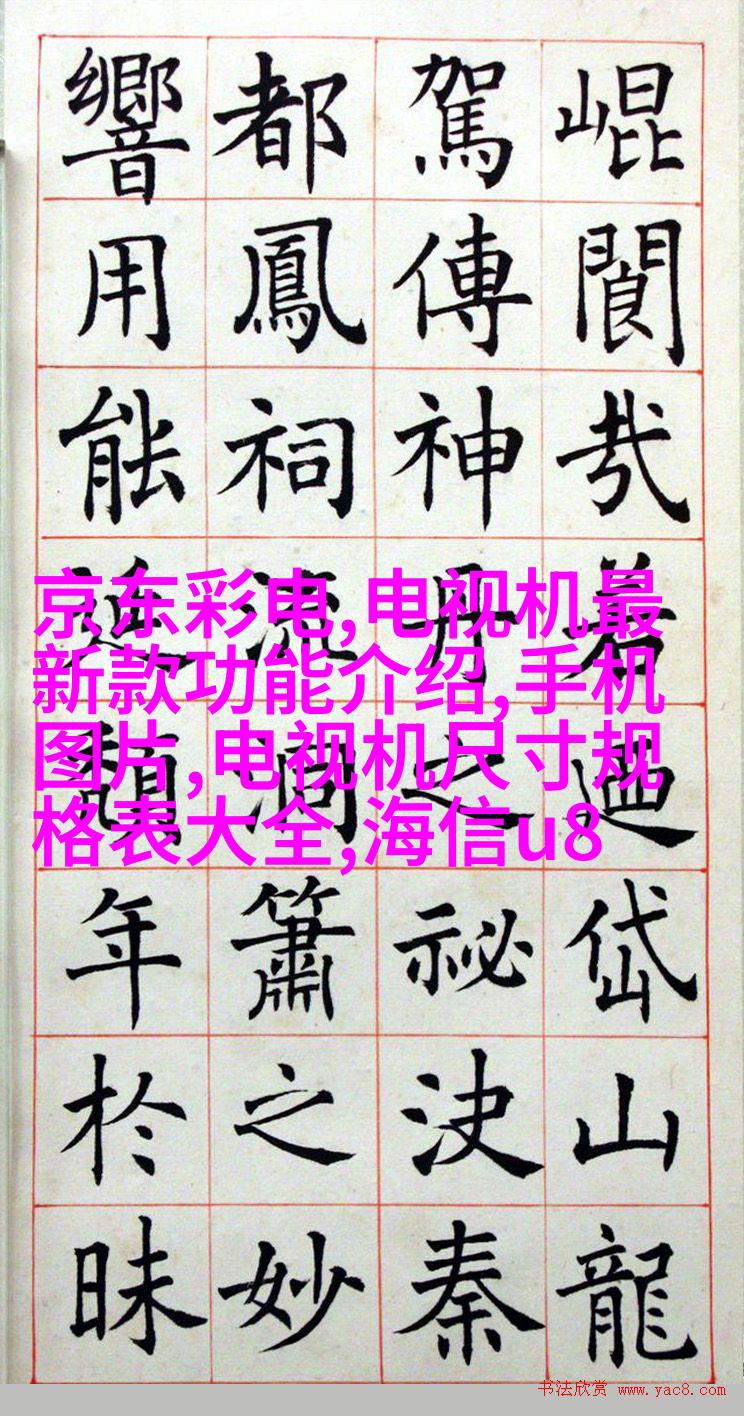 崐閬㦲若迺岱山龍
駕傳神丹之祕決秦
都鳳祠流洞簫之妙
響用能延頹年於昧
京东彩电,电视机最
新款功能介绍,手机
图片,电视机尺寸规
格表大全,海信u8
书法欣赏 www.yac8.com